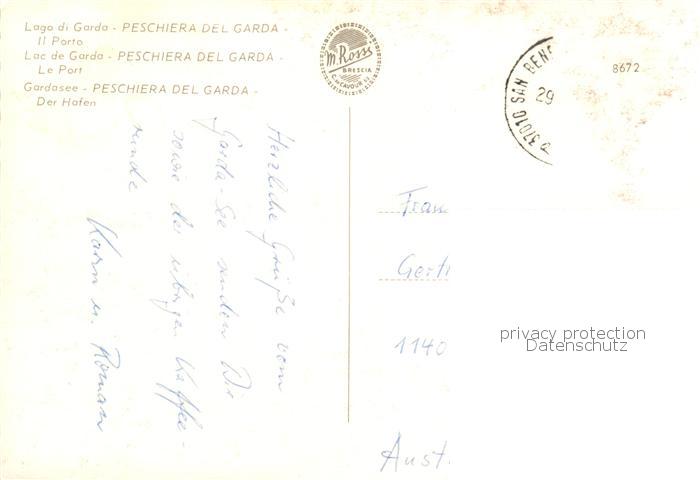 Lago di Garda - PESCHIERA DEL GARDA -
Il Porto
Lac de Garda - PESCHIERA DEL GARDA -
Le Port
Gardasee - PESCHIERA DEL GARDA -
Der Hafen
M. Ross
BRESCIA
C. M. CAVOUR 52
37010 SAN BENE
29
8672
Herzliche Grüße vom
Garda-See senden Dir
sowie der übrigen Kaffee-
runde
Karin u. Roman
Frau
Gertr
1140
Aust.
privacy protection
Datenschutz